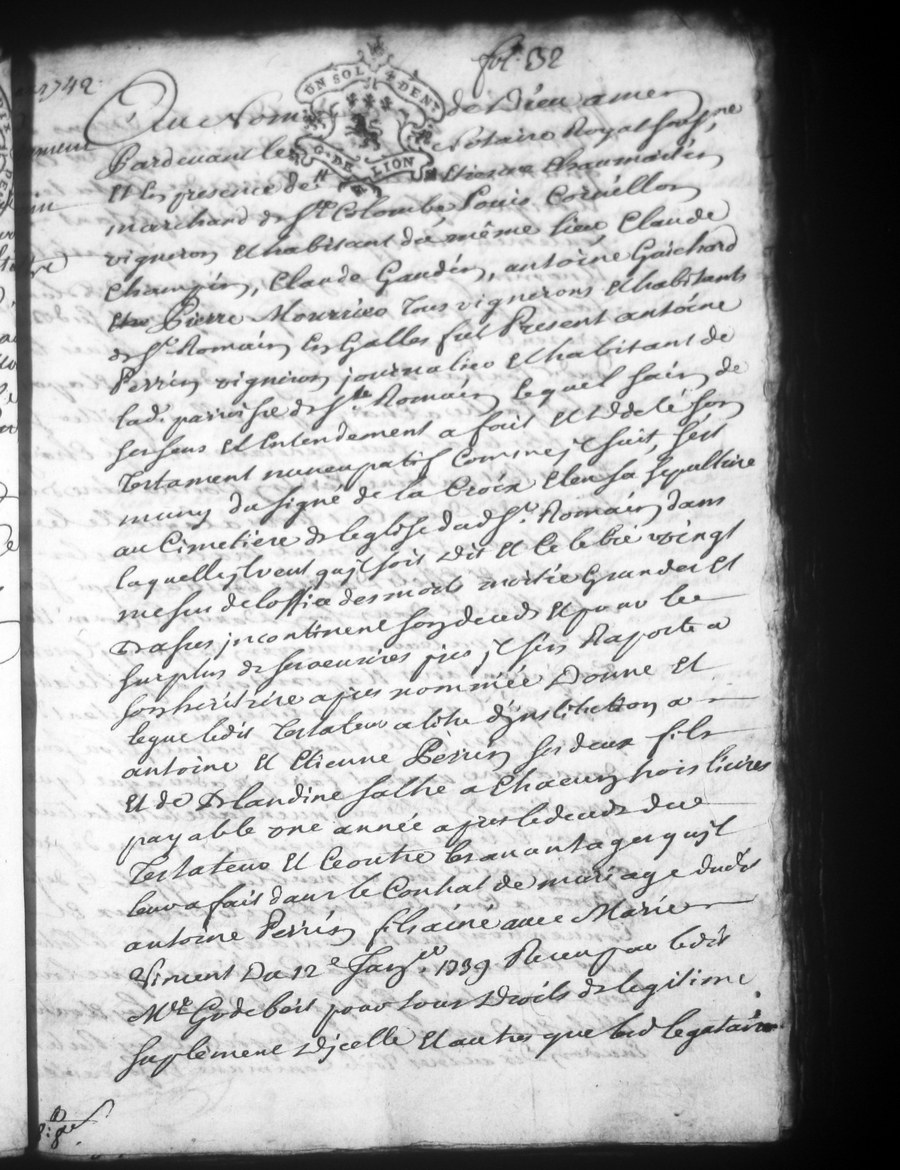 fol. 132
1742
UN SOL DENT
G. DE LION
Au Nom de Dieu amen
Pardevant le Notaire Royal soussigne
Et En presence de sr Etienne Chaumartin
marchand de Ste Colombe, Louis Cornillon
vigneron Et habitant du même lieu Claude
Champin, Claude Gaudin, antoine Guichard
Et Pierre Mourrier Tous vignerons Et habitants
de St Romain En Galles fut Present antoine
Perrin vigneron journalier Et habitant de
lad. parroisse de St Romain lequel sain de
ses sens Et Entendement a fait Et dicté son
Testament nuncupatif Comme il suit, s'est
muny du signe de la Croix Eleu sa sepulture
au Cimetiere de leglise dud. St. Romain dans
laquelle il veut qu'il soit dit Et Celebré vingt
messes de loffice des morts moitié Grandes Et
Basses incontinent son deceds Et pour le
surplus de ses oeuvres pies il s'en Raporte a
son heritiere apres nommée Donne Et
legue ledit Testateur a titre d'institution a
antoine Et Etienne Perrin ses deux fils
Et de Blandine a Chacun trois livres
payable une année apres le deceds du
Testateur Et Ce outre les avantages qu'il
leur a fait dans le Contrat de mariage dudit
antoine Perrin fils ainé avec Marie
Vincent Du 12e Janvr. 1739 Receu par ledit
Me pour tous droits de legitime
suplement d'icelle Et autres que led legataire